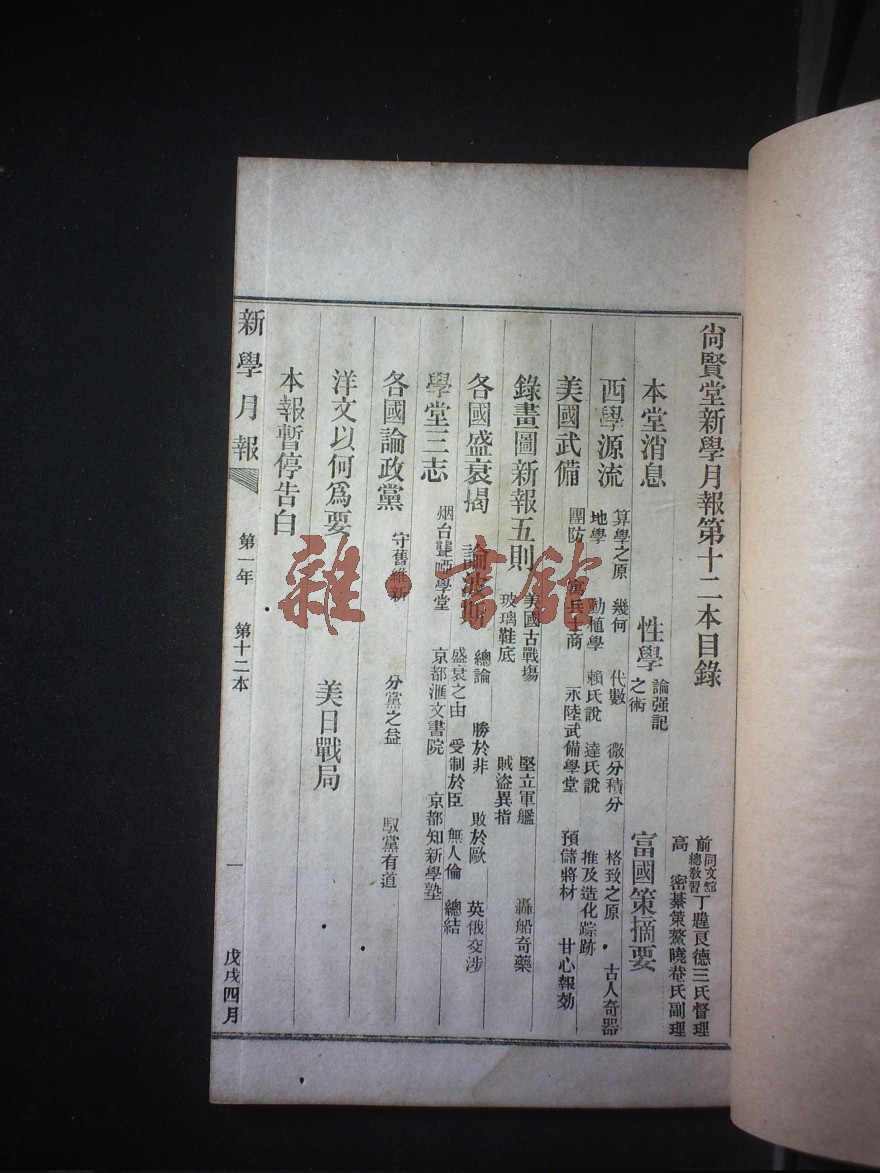 尙賢堂新學月報第十二本目錄
前同文館總敎習丁韙良德三氏督理
高密綦策鰲曉菴氏副理
本堂消息 性學 論强記之術 富國策摘要
西學源流 算學之原 幾何 代數 微分積分 格致之原 古人奇器
地學 動植學 賴氏說 達氏說 推及造化踪跡
美國武備 團防 寓兵士商 水陸武備學堂 預儲將材 甘心報効
錄畫圖新報五則 美國古戰塲 堅立軍艦 轟船奇藥
玻璃鞋底 賊盜異指
各國盛衰揭 論波斯 總論 勝於非 敗於歐 英俄交涉
盛衰之由 受制於臣 無人倫 總結
學堂三志 烟台聾啞學堂 京都滙文書院 京都知新學塾
各國論政黨 守舊維新 分黨之益 馭黨有道
洋文以何爲要 美日戰局
本報暫停告白
新學月報 第一年 第十二本 一 戊戌四月
雜·書館